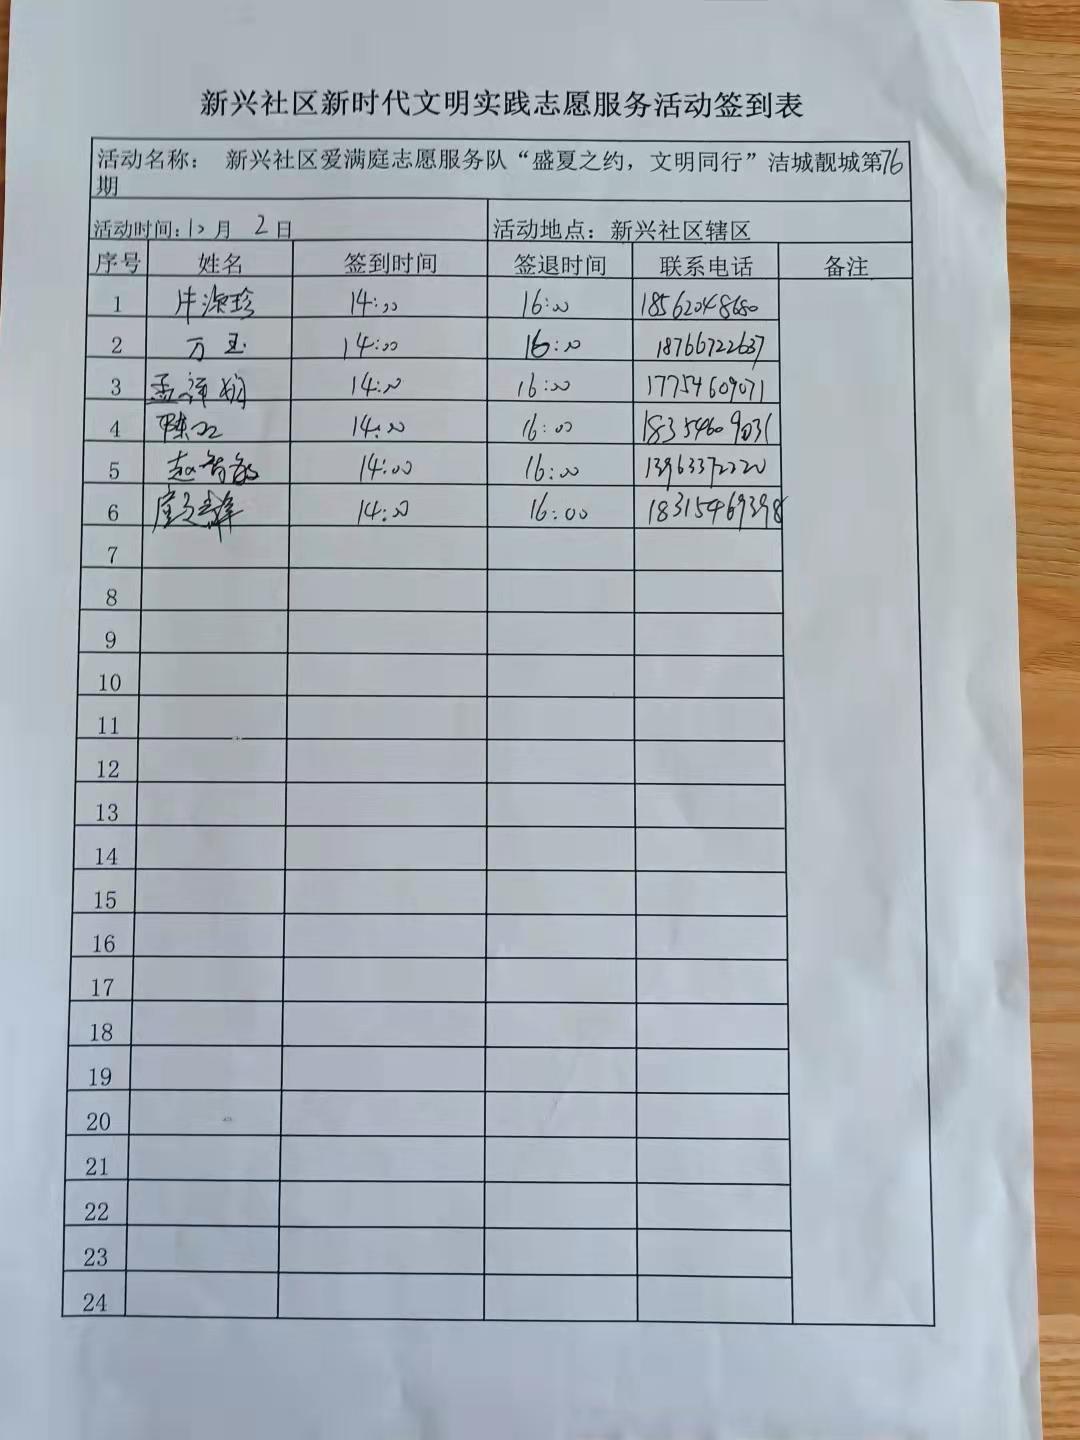 新兴社区新时代文明实践志愿服务活动签到表
活动名称： 新兴社区爱满庭志愿服务队“盛夏之约，文明同行”洁城靓城第76
期
活动时间：10月 2日 活动地点：新兴社区辖区
序号 姓名 签到时间 签退时间 联系电话 备注
1 14:00 16:00 18562048680
2 万玉 14:00 16:00 18766722637
3 孟祥娟 14:00 16:00 17754609071
4 14:00 16:00 18354609031
5 赵智敏 14:00 16:00 13963372220
6 14:00 16:00 18315469398
7
8
9
10
11
12
13
14
15
16
17
18
19
20
21
22
23
24